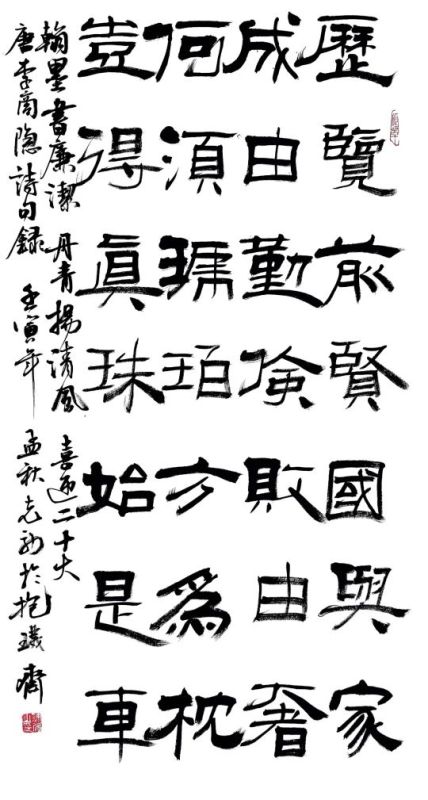 歷覽前賢國與家
成由勤儉敗由奢
何須琥珀方爲枕
豈得眞珠始是車
翰墨書廉潔 丹青揚清風 喜迎二十大
唐李商隱詩句錄 壬寅年 孟秋 於抱璞齋